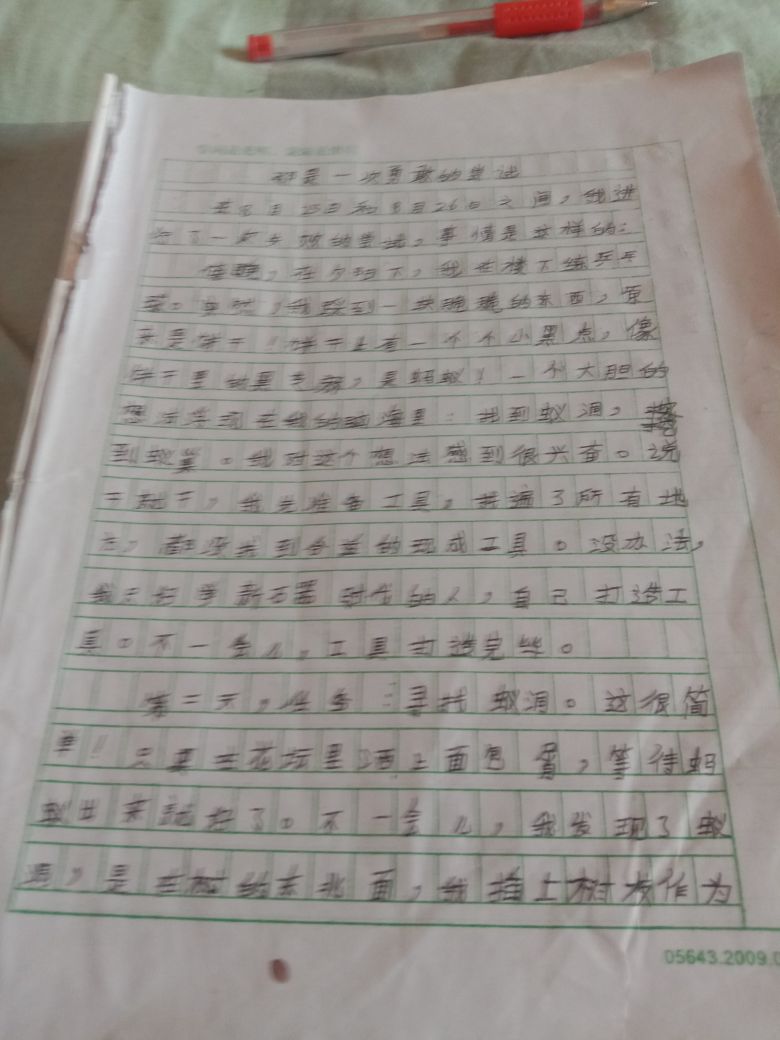 那是一次勇敢的尝试
在8月25日和8月26日之间，我进
行了一次失败的尝试，事情是这样的：
傍晚，在夕阳下，我在楼下练乒乓
球。突然，我踩到一块脆脆的东西，原
来是饼干！饼干上有一个个小黑点，像
饼干里的黑芝麻，是蚂蚁！一个大胆的
想法浮现在我的脑海里：找到蚁洞，挖
到蚁巢。我对这个想法感到很兴奋。说
干就干，我先准备工具，找遍了所有地
方，都没找到合适的现成工具。没办法，
我只好学新石器时代的人，自己打造工
具。不一会儿，工具打造完毕。
第二天，任务：寻找蚁洞。这很简
单！只要在花坛里洒上面包屑，等待蚂
蚁出来就好了。不一会儿，我发现了蚁
洞，是在树的东北面，我插上树枝作为
05643.2009.0